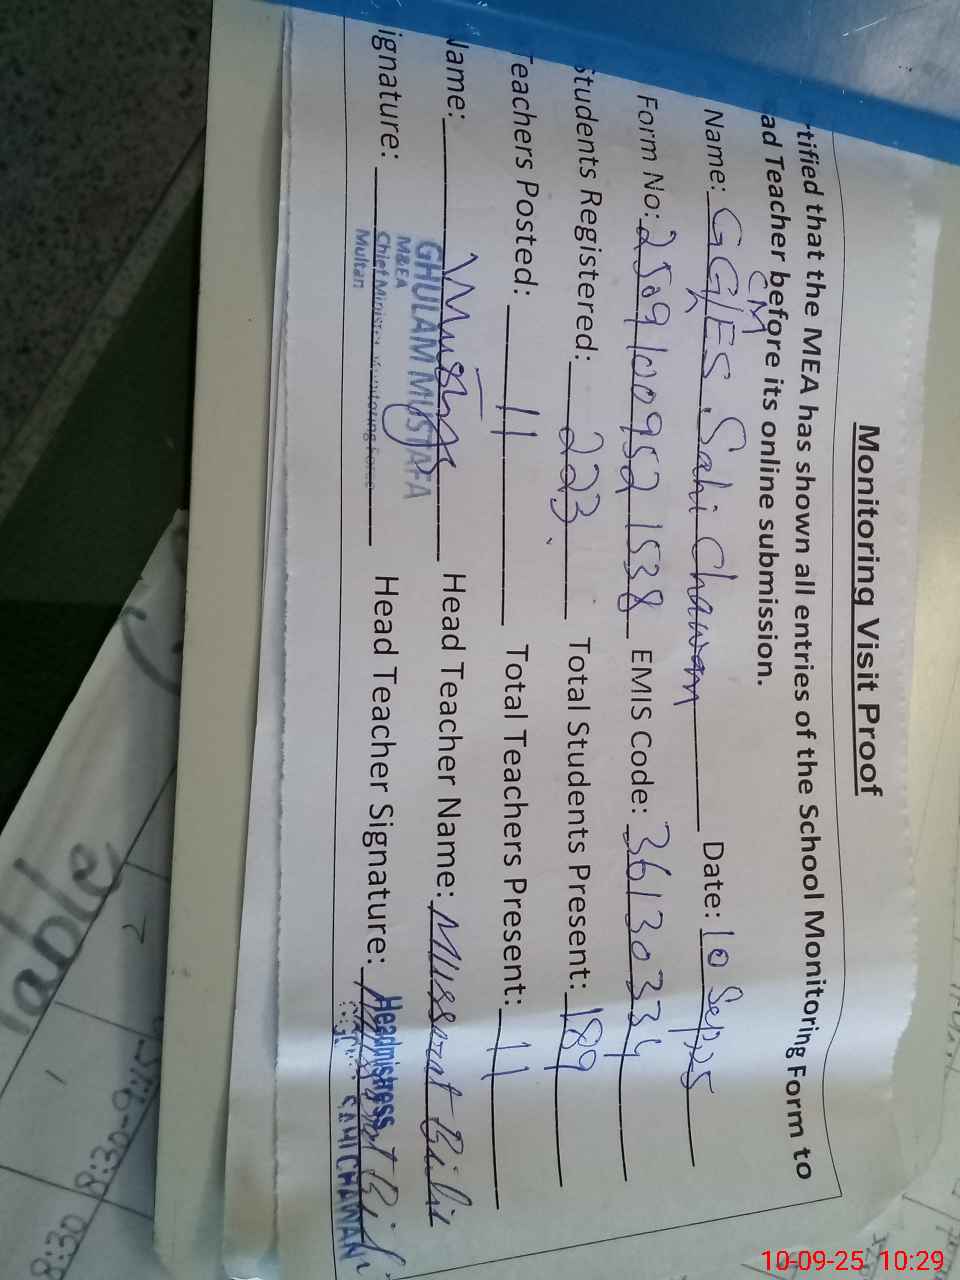 Monitoring Visit Proof
tified that the MEA has shown all entries of the School Monitoring Form to
ad Teacher before its online submission.
Name: GGCMES Sahi Chawan Date: 10 Sep 25
Form No: 25091009521538 EMIS Code: 36130334
Students Registered: 223 Total Students Present: 189
Teachers Posted: 11 Total Teachers Present: 11
Name: Mustafa Head Teacher Name: Mussarat Bibi
GHULAM MUSTAFA
M&EA
ignature: Head Teacher Signature: Mussarat Bibi
Chief Minister Monitoring Force
Multan
Headmistress
SAHI CHAWAN
Table
1 2
8:30 8:30-9:15
10-09-25 10:29